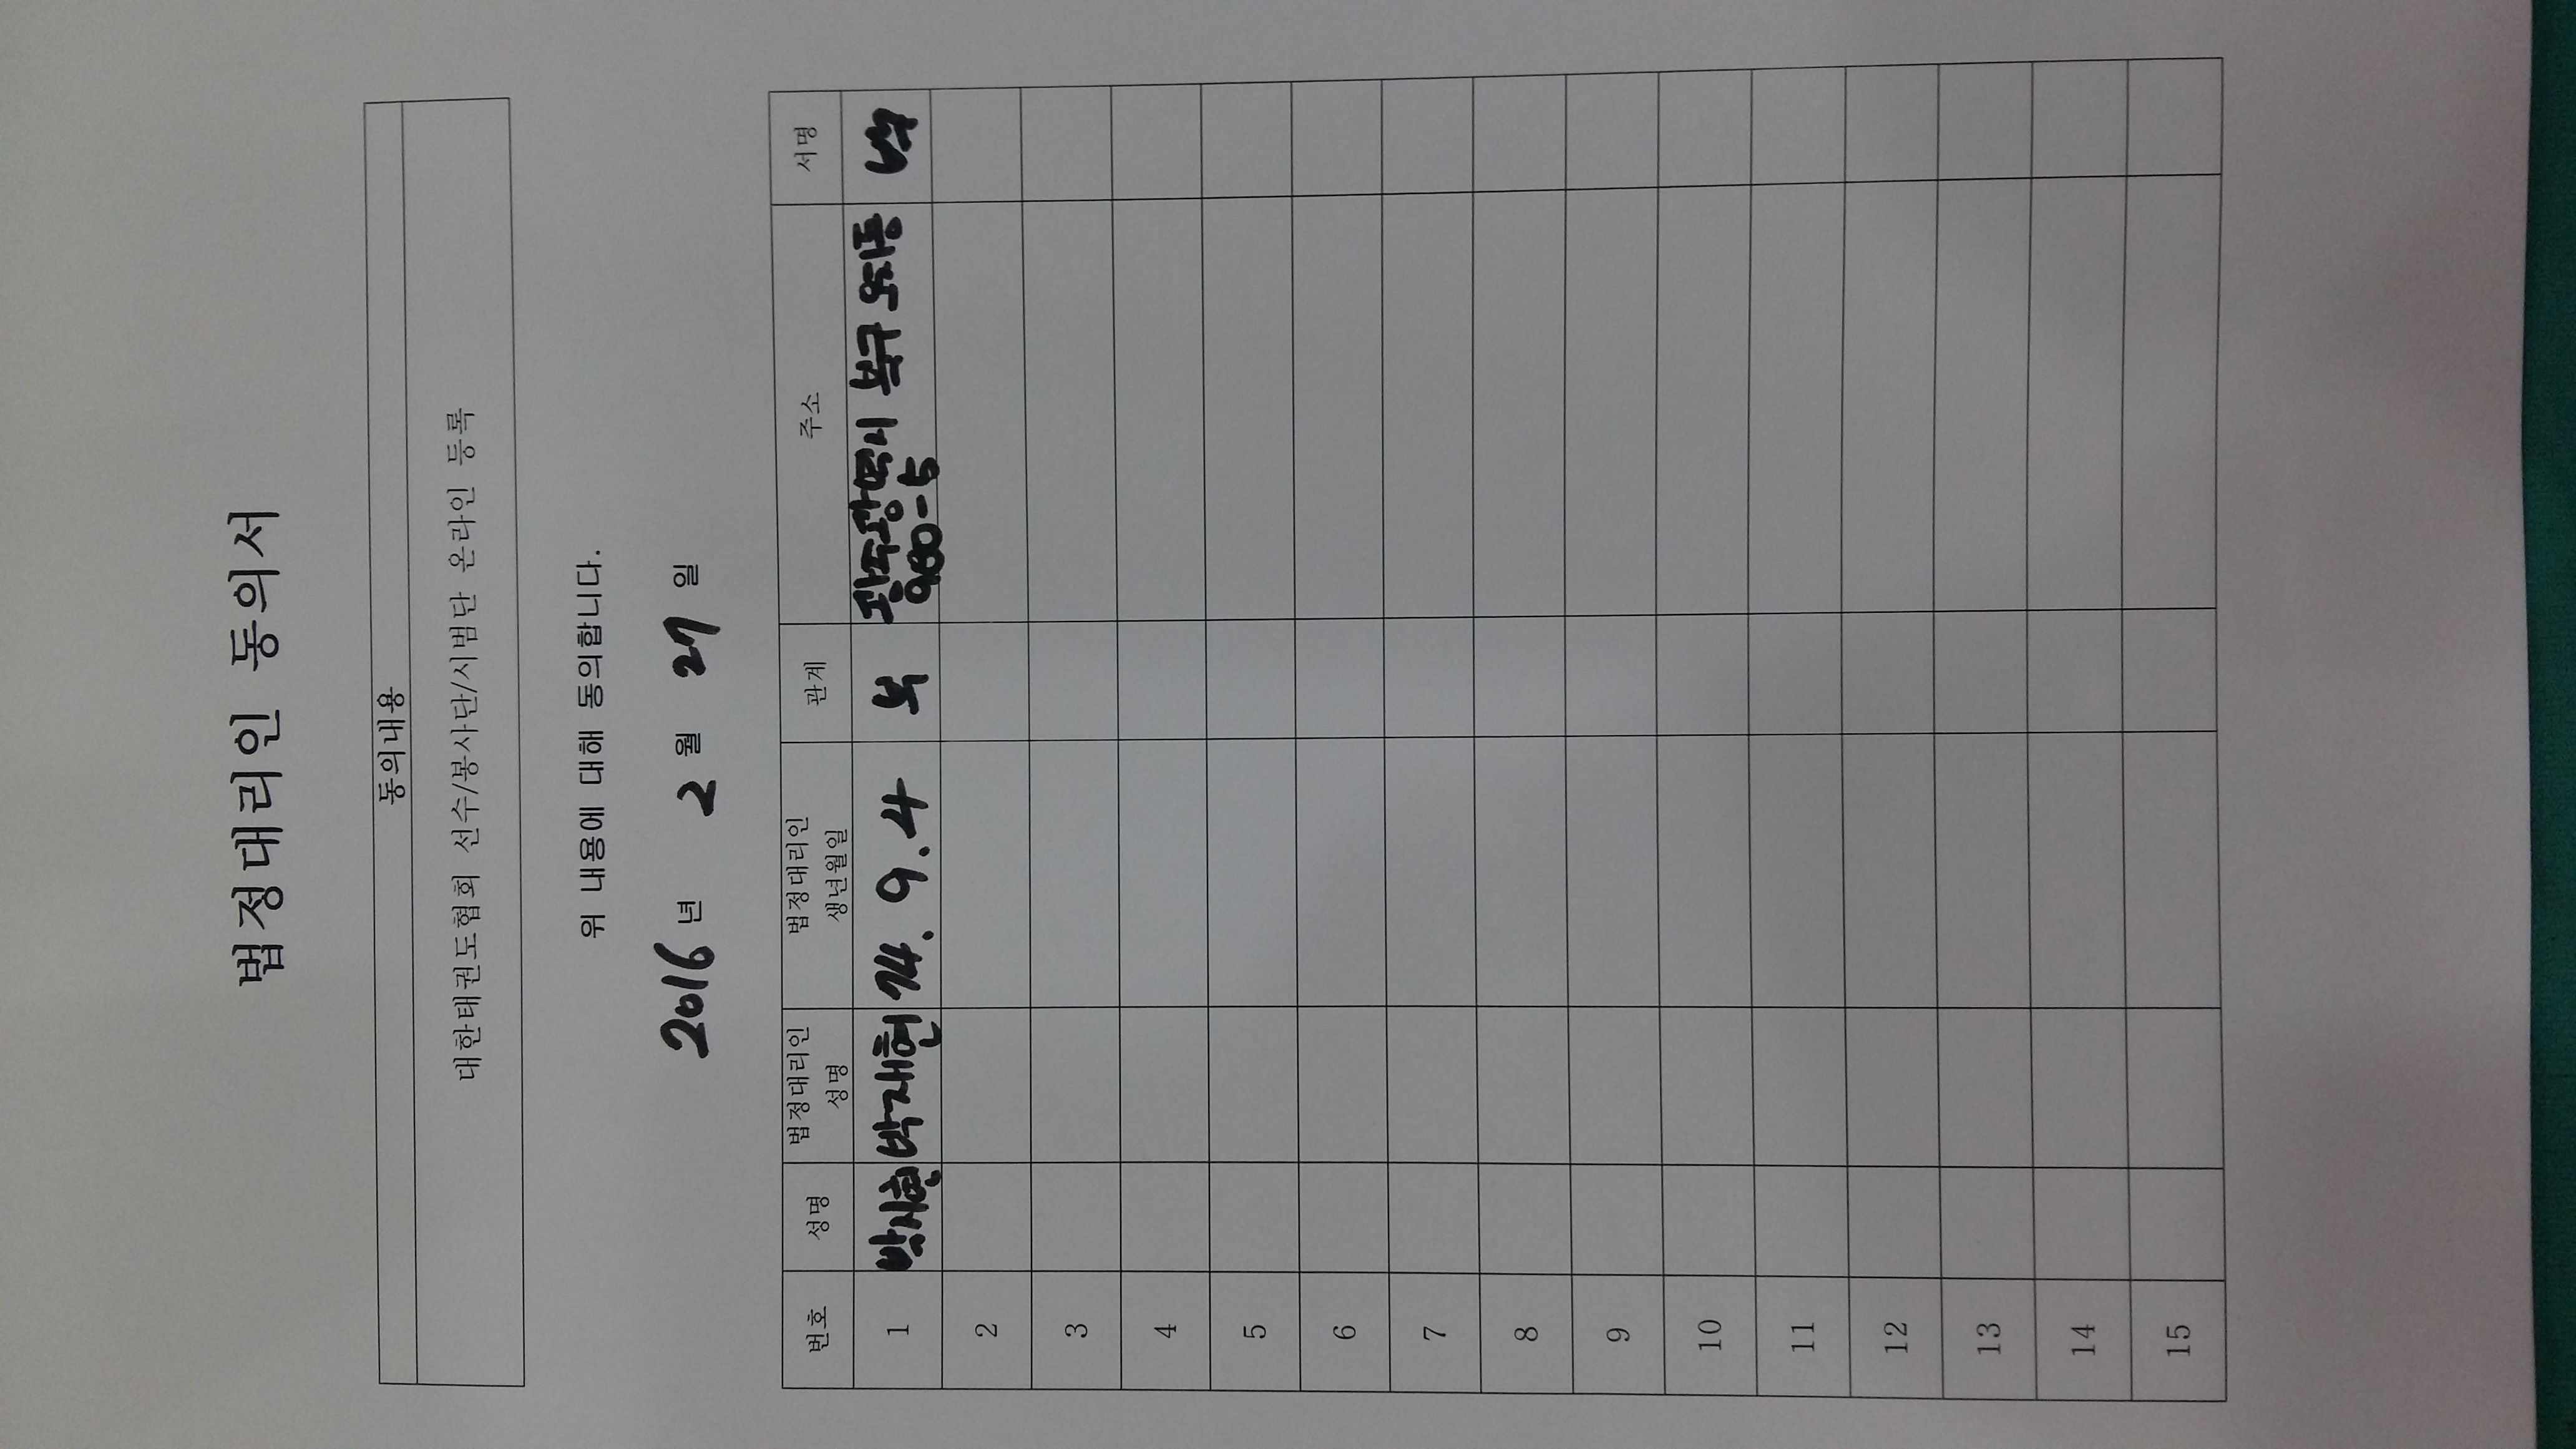 법정대리인 동의서
동의내용
대한태권도협회 선수/봉사단/시범단 온라인 등록
위 내용에 대해 동의합니다.
2016 년 2 월 27 일
번호 성명 법정대리인 성명 법정대리인 생년월일 관계 주소 서명
1 박시현 박재현 74. 9. 4 부 광주광역시 북구 오치동 980-5
2
3
4
5
6
7
8
9
10
11
12
13
14
15